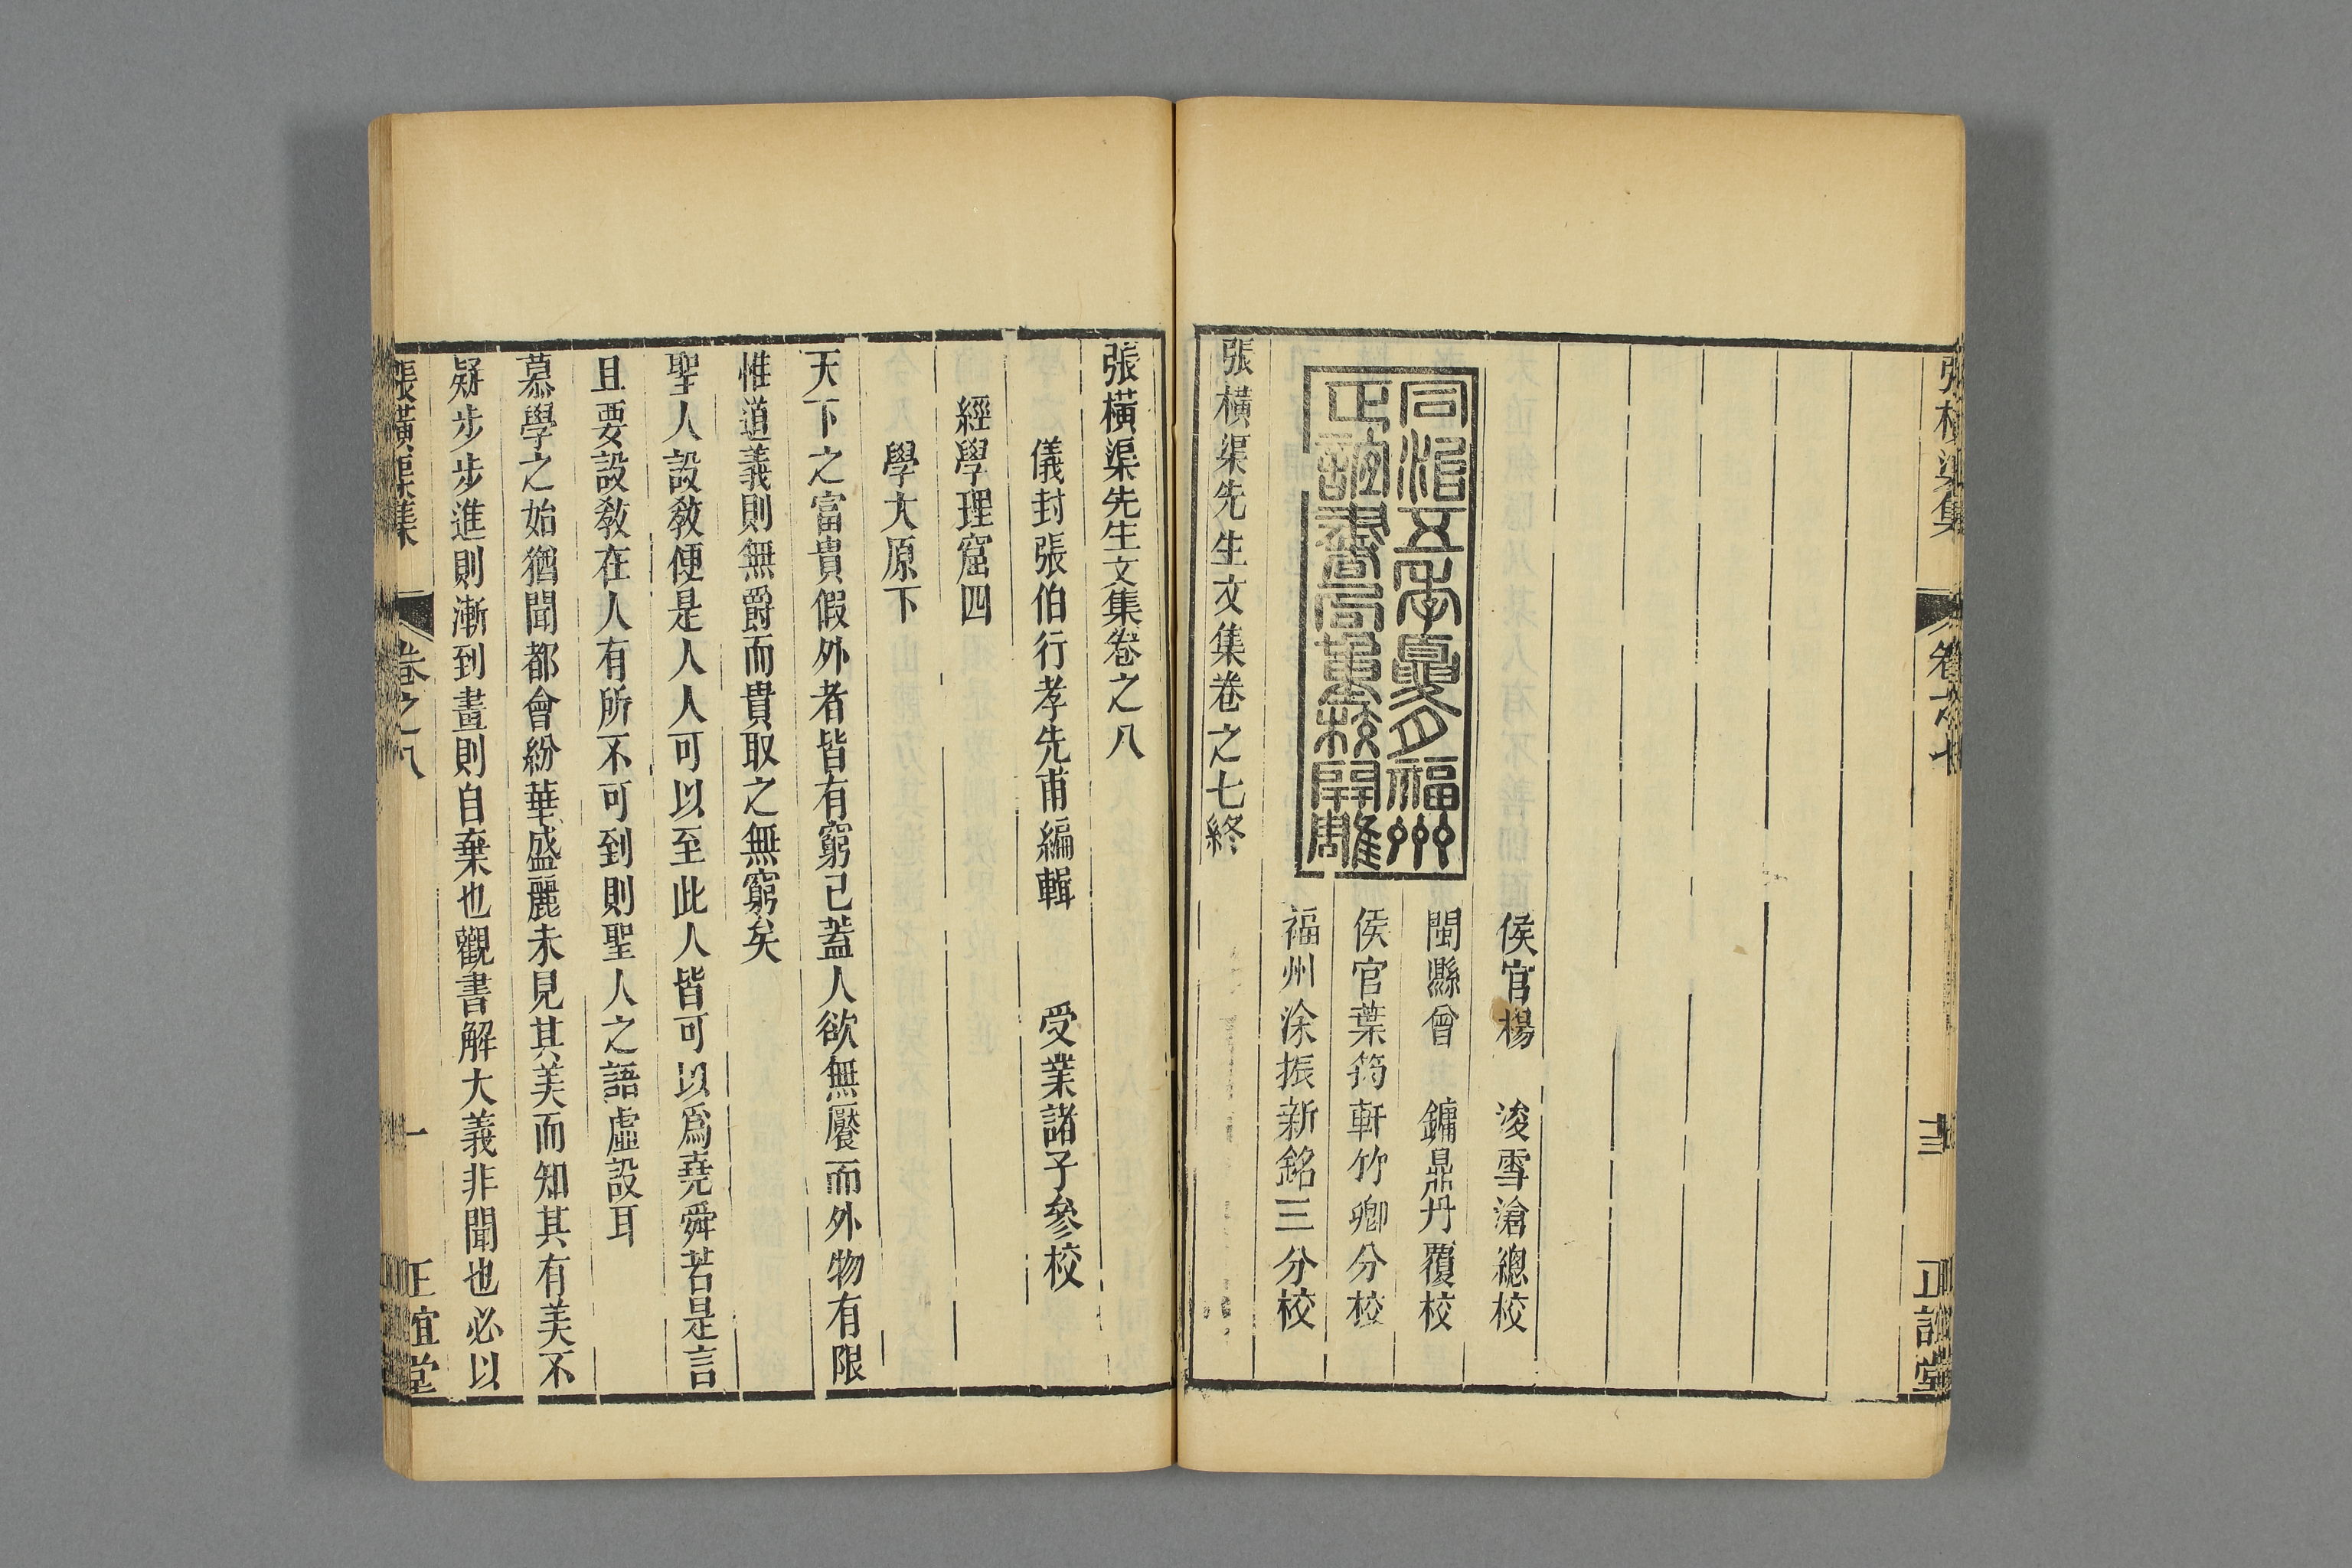 張橫渠集
卷之七
正誼堂
侯官楊　浚雪滄總校
閩縣曾　鏞鼎丹覆校
侯官葉筠軒竹卿分校
福州涂振新銘三分校
同治五年夏月福州
正誼書局重校開雕
張橫渠先生文集卷之七終
張橫渠先生文集卷之八
儀封張伯行孝先甫編輯　受業諸子參校
經學理窟四
學大原下
天下之富貴假外者皆有窮已蓋人欲無饜而外物有限
惟道義則無爵而貴取之無窮矣
聖人設教便是人人可以至此人皆可以爲堯舜若是言
且要設教在人有所不可到則聖人之語虛設耳
慕學之始猶聞都會紛華盛麗未見其美而知其有美不
疑步步進則漸到畫則自棄也觀書解大義非聞也必以
張橫渠集
卷之八
一
正誼堂